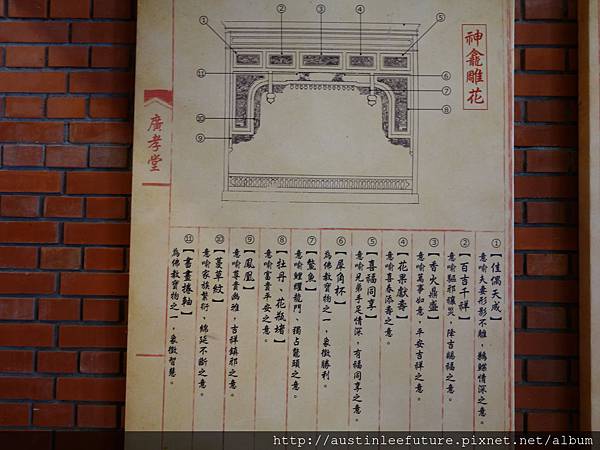 神龕雕花
① ② ③ ④ ⑤
⑥
⑦
⑧
⑨
⑩
⑪
廣孝堂
①【佳偶天成】
意喻夫妻形影不離，鶼鰈情深之意。
②【百吉千祥】
意喻驅邪禳災，降吉賜福之意。
③【香火鼎盛】
意喻萬事如意，平安吉祥之意。
④【花果獻壽】
意喻喜春添壽之意。
⑤【喜福同享】
意喻兄弟手足情深，有福同享之意。
⑥【犀角杯】
為佛教寶物之一，象徵勝利。
⑦【鰲魚】
意喻鯉耀龍門、獨占鰲頭之意。
⑧【牡丹、花瓶堵】
意喻富貴平安之意。
⑨【鳳凰】
意喻尊貴幽雅，吉祥鎮邪之意。
⑩【蔓草紋】
意喻家族繁衍，綿延不斷之意。
⑪【書畫捲軸】
為佛教寶物之一，象徵智慧。
http://austinleefuture.pixnet.net/album